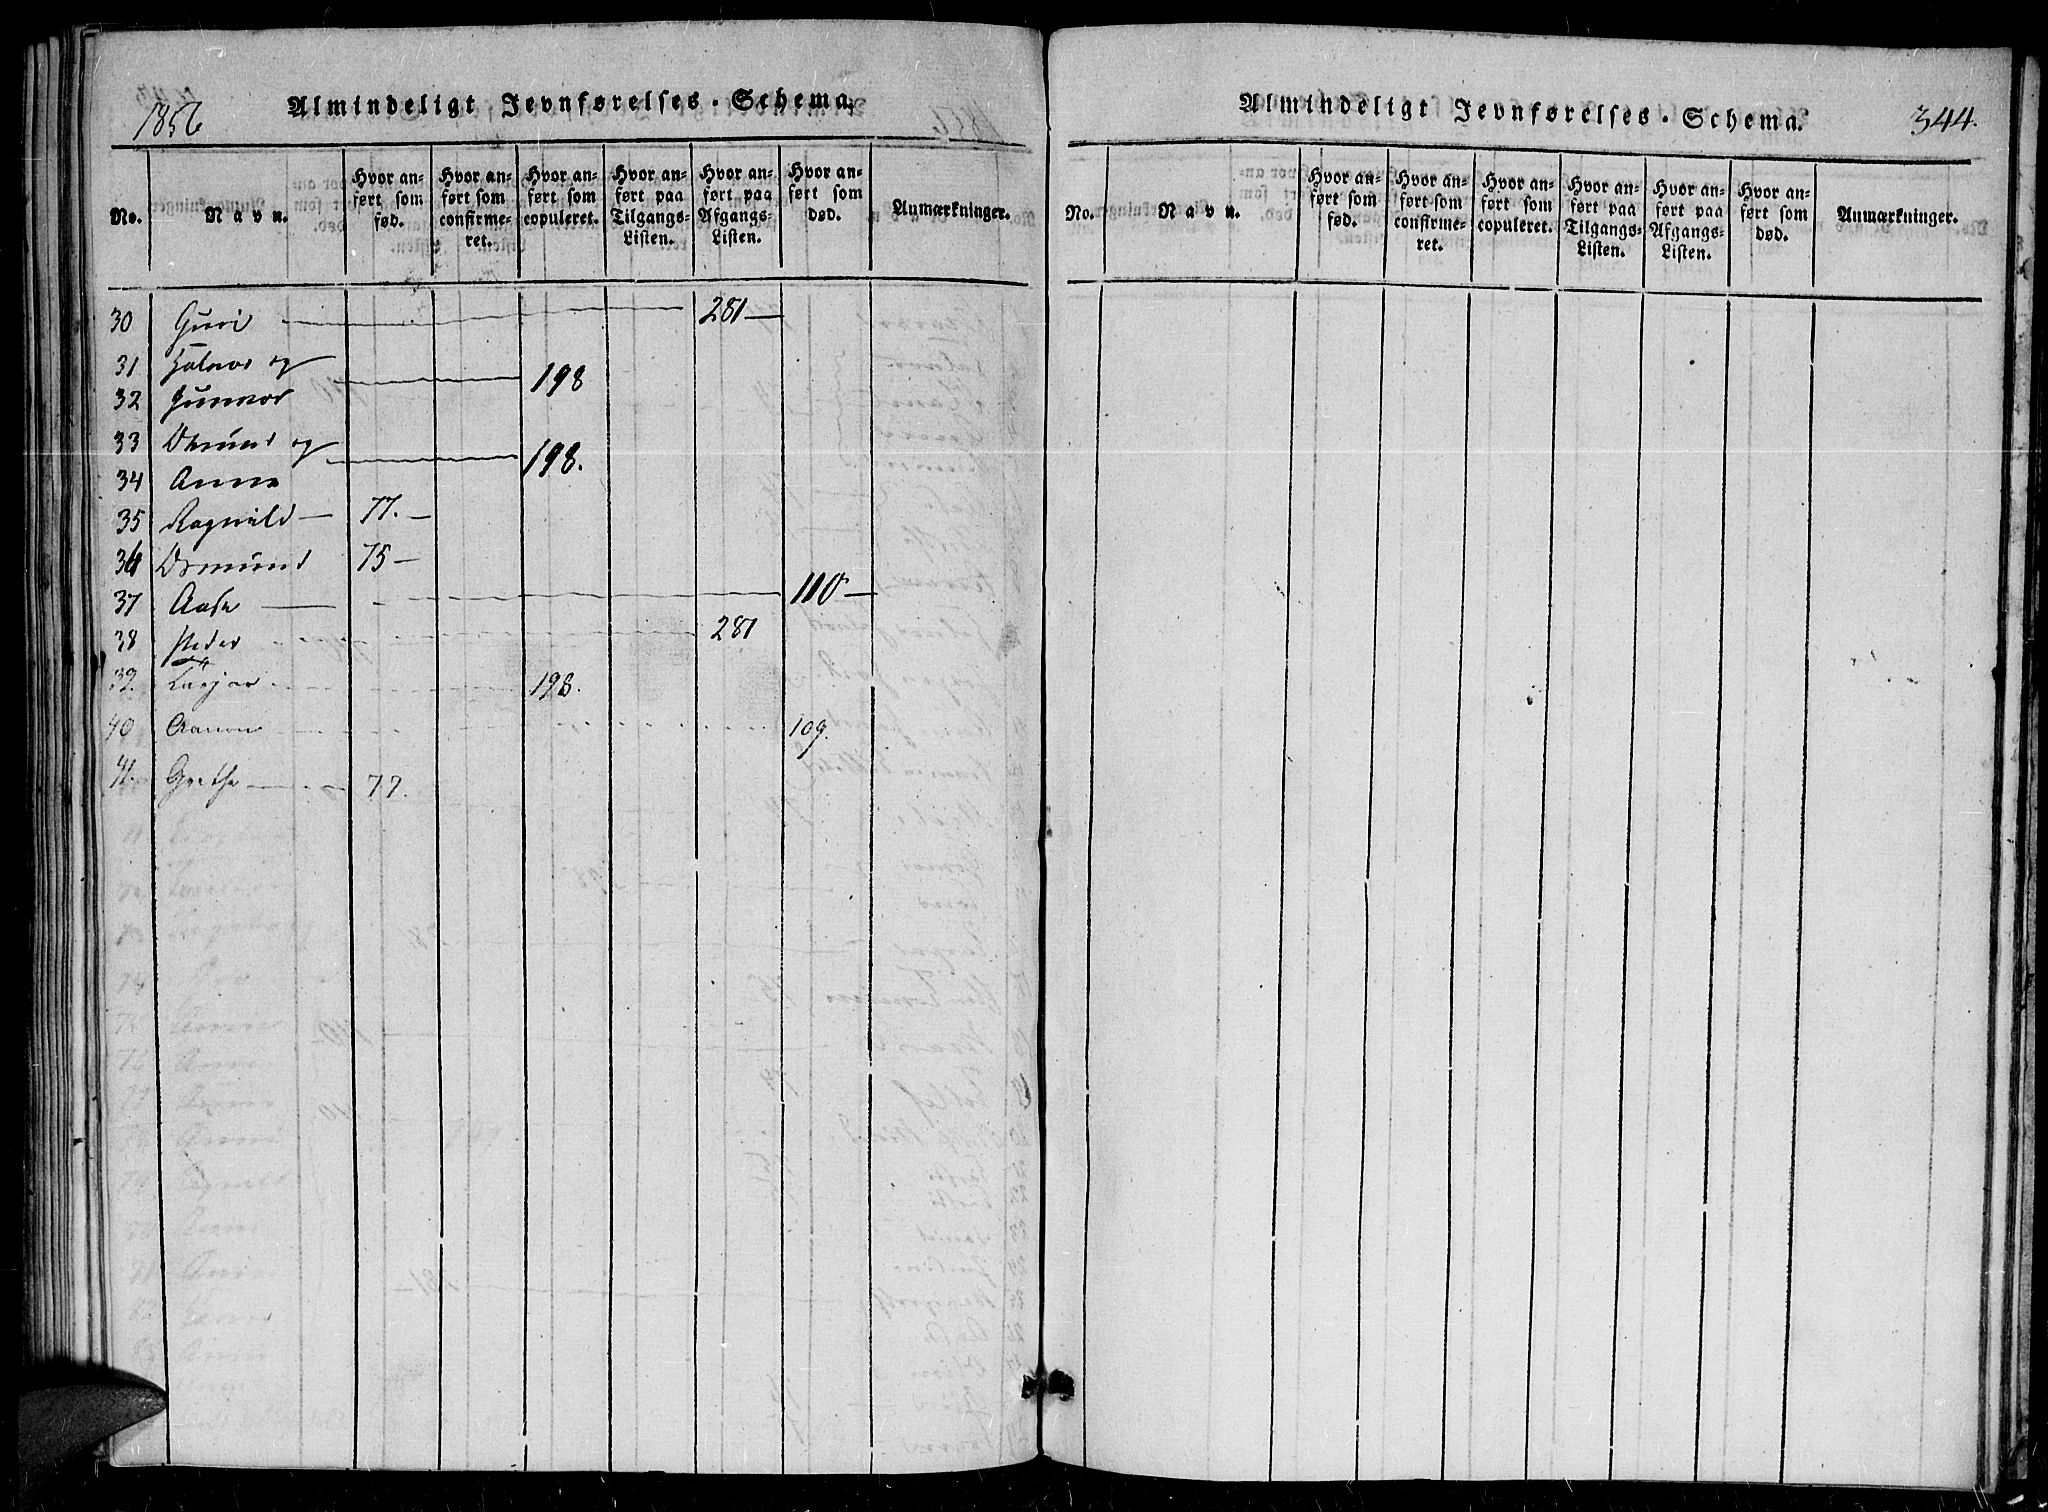 1856 Almindeligt Jevnførelses-Schema.
No. Navn. Hvor anført som fød. Hvor anført som confirmeret. Hvor anført som copuleret. Hvor anført paa Tilgangs-Listen. Hvor anført paa Afgangs-Listen. Hvor anført som død. Anmærkninger.
30 Guri 281
31 Halvor og
198
32 Gunvor
33 og
198.
34 Anne
35 Ragnild 77.
36 Osmund 75
37 Aase 110
38 Peder 281
39. 198.
40 Aanon 109.
41. Grethe 77.
Almindeligt Jevnførelses-Schema. 344.
No. Navn. Hvor anført som fød. Hvor anført som confirmeret. Hvor anført som copuleret. Hvor anført paa Tilgangs-Listen. Hvor anført paa Afgangs-Listen. Hvor anført som død. Anmærkninger.